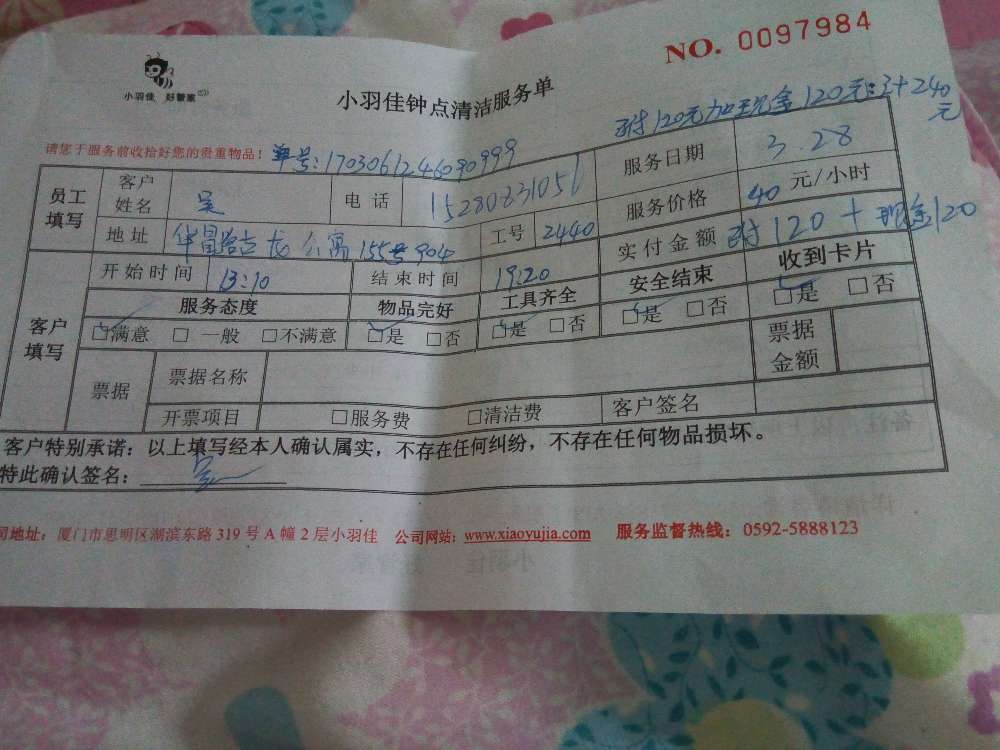 NO. 0097984
小羽佳 好管家
小羽佳钟点清洁服务单
付120元加现金120元 240元
请您于服务前收拾好您的贵重物品！ 单号:1703061246090999
员工填写 客户姓名 吴 电话 15280831051 服务日期 3.28
服务价格 40 元/小时
地址 公寓155号904 工号 2440 实付金额 付120+现金120
客户填写 开始时间 13:10 结束时间 19:20 安全结束 收到卡片
服务态度 物品完好 工具齐全 □是 □否 □是 □否
□满意 □一般 □不满意 □是 □否 □是 □否
票据 票据名称 票据金额
开票项目 □服务费 □清洁费 客户签名
客户特别承诺：以上填写经本人确认属实，不存在任何纠纷，不存在任何物品损坏。
特此确认签名： 吴
司地址：厦门市思明区湖滨东路319号A幢2层小羽佳 公司网站：www.xiaoyujia.com 服务监督热线：0592-5888123